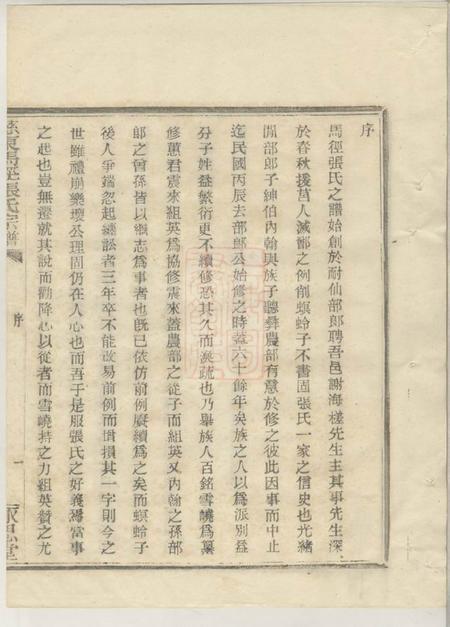 序
馬徑張氏之譜始創於耐仙部郎聘吾邑謝海槎先生主其事先生深
於春秋援莒人滅鄫之例削螟蛉子不書固張氏一家之信史也光緒
間部郎子紳伯內翰與族子聽彝農部有意於修之彼此因事而中止
迄民國丙辰去部郎公始修之時蓋六十餘年矣族之人以為派別益
分子姓益繁衍更不續修恐其久而漸疏也乃舉族人百銘雪嶢為纂
修薰君震來組英為協修震來蓋農部之從子而組英又內翰之孫部
郎之曾孫皆以繼志為事者也既已依仿前例賡續為之矣而螟蛉子
後人爭端忽起纏訟者三年卒不能改易前例而增損其一字則今之
世雖禮崩樂壞公理固仍在人心也而吾于是服張氏之好義焉當事
之起也豈無遷就其說而勸降心以從者而雪嶢持之力組英贊之尤
慈東馬徑張氏宗譜
序
一
永思堂